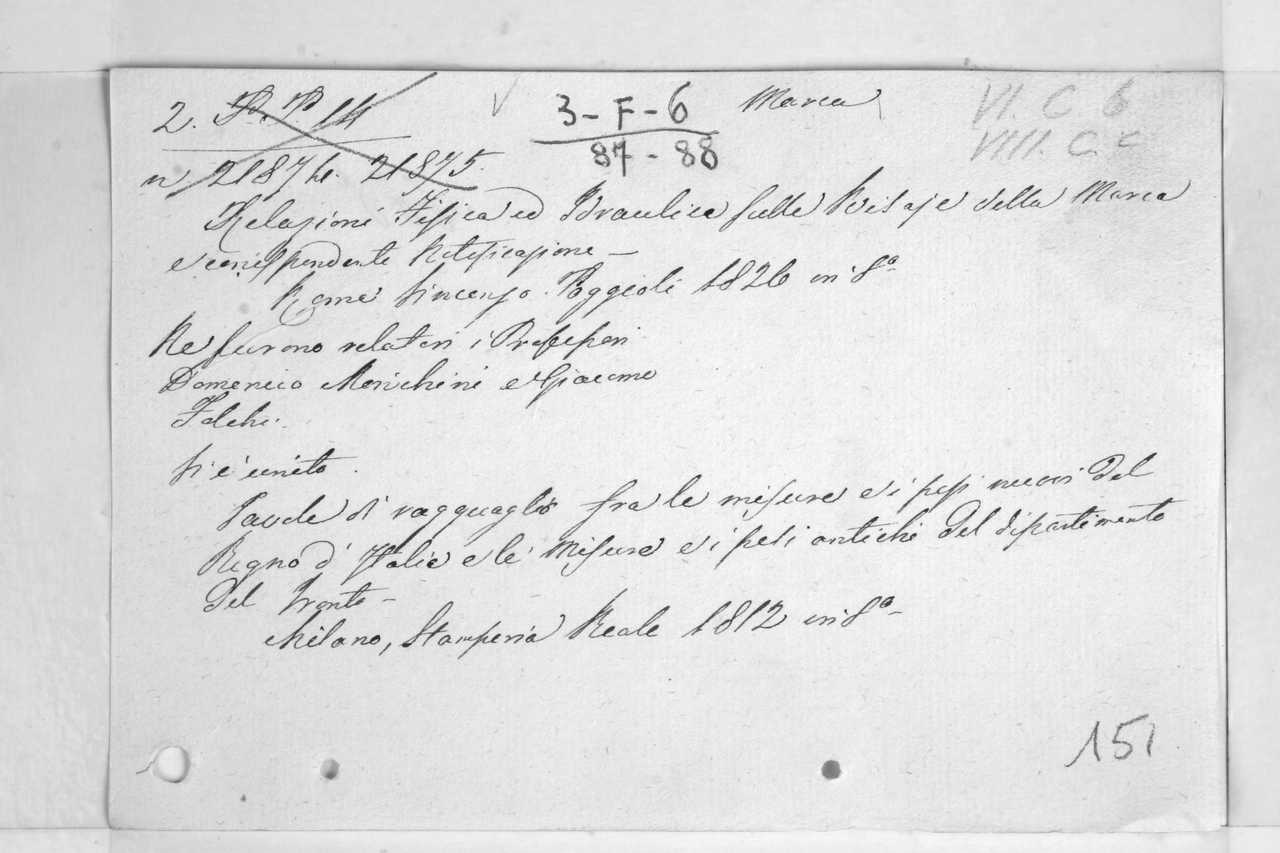 2. P. P. 14
3-F-6 Marca VI. C 6
87-88 VIII. C. c
n 21874. 21875.
Relazioni Fisica ed Idraulica sulle Risaje della Marca
e corrispondente Notificazione –
Roma Vincenzo Poggioli 1826 in 8º
Ne furono relatori i Professori
Domenico Morichini e Giacomo
Folchi.
Vi è unito.
Tavole di ragguaglio fra le misure e i pesi nuovi del
Regno d'Italia e le misure e i pesi antichi del dipartimento
del Tronto –
Milano, Stamperia Reale 1812 in 8º –
151